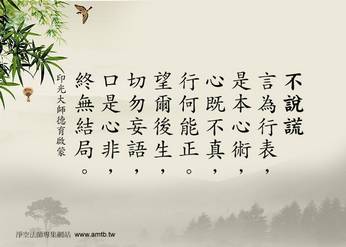 不說謊
言為行表，
是本心術，
心既不真，
行何能正。
望爾後生，
切勿妄語，
口是心非，
終無結局。
印光大師德育啟蒙
淨空法師專集網站 www.amtb.tw